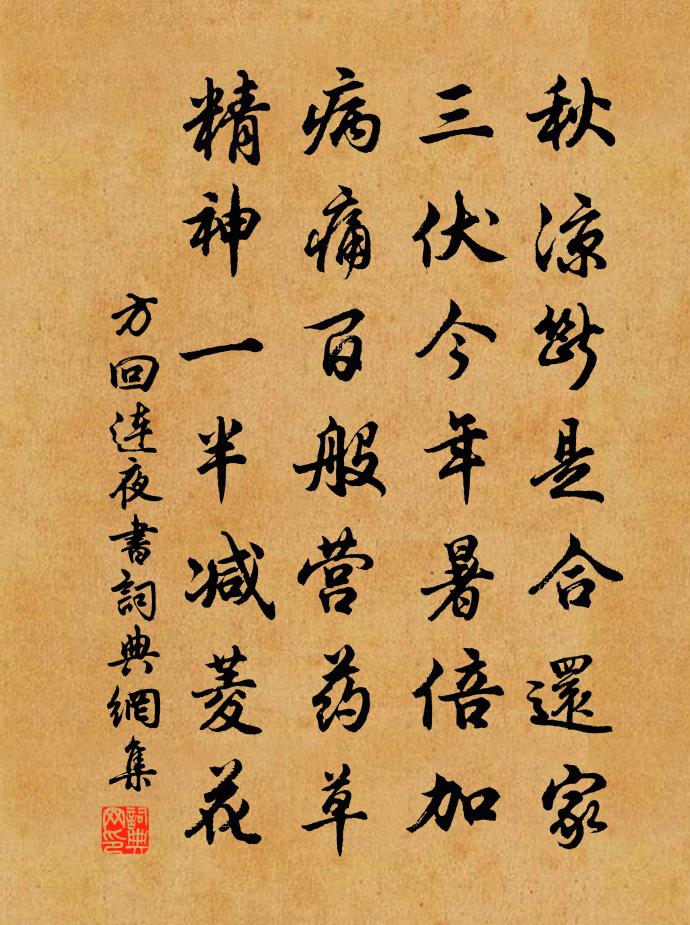 秋涼斷是合還家
三伏今年暑倍加
病痛百般营药草
精神一半减菱花
方回连夜書詞典網集
詞典网印